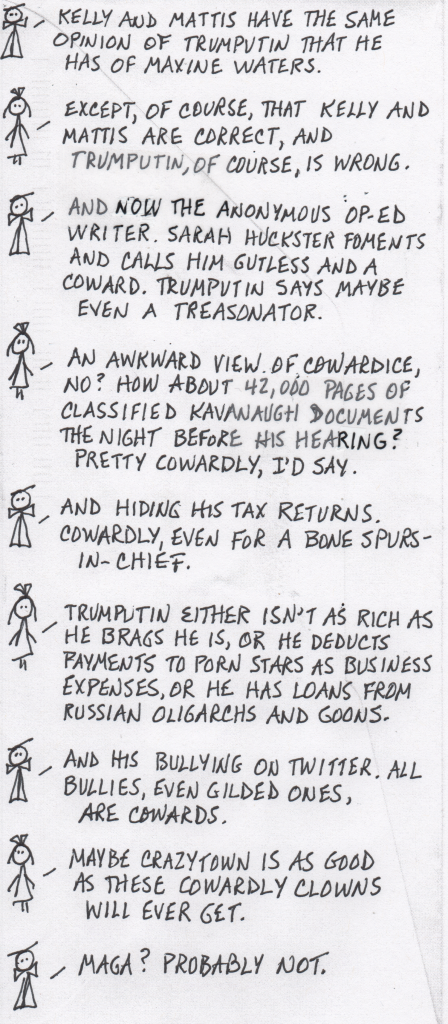 KELLY AND MATTIS HAVE THE SAME
OPINION OF TRUMPUTIN THAT HE
HAS OF MAXINE WATERS.
EXCEPT, OF COURSE, THAT KELLY AND
MATTIS ARE CORRECT, AND
TRUMPUTIN, OF COURSE, IS WRONG.
AND NOW THE ANONYMOUS OP-ED
WRITER. SARAH HUCKSTER FOMENTS
AND CALLS HIM GUTLESS AND A
COWARD. TRUMPUTIN SAYS MAYBE
EVEN A TREASONATOR.
AN AWKWARD VIEW OF COWARDICE,
NO? HOW ABOUT 42,000 PAGES OF
CLASSIFIED KAVANAUGH DOCUMENTS
THE NIGHT BEFORE HIS HEARING?
PRETTY COWARDLY, I'D SAY.
AND HIDING HIS TAX RETURNS.
COWARDLY, EVEN FOR A BONE SPURS-
IN-CHIEF.
TRUMPUTIN EITHER ISN'T AS RICH AS
HE BRAGS HE IS, OR HE DEDUCTS
PAYMENTS TO PORN STARS AS BUSINESS
EXPENSES, OR HE HAS LOANS FROM
RUSSIAN OLIGARCHS AND GOONS.
AND HIS BULLYING ON TWITTER. ALL
BULLIES, EVEN GILDED ONES,
ARE COWARDS.
MAYBE CRAZYTOWN IS AS GOOD
AS THESE COWARDLY CLOWNS
WILL EVER GET.
MAGA? PROBABLY NOT.